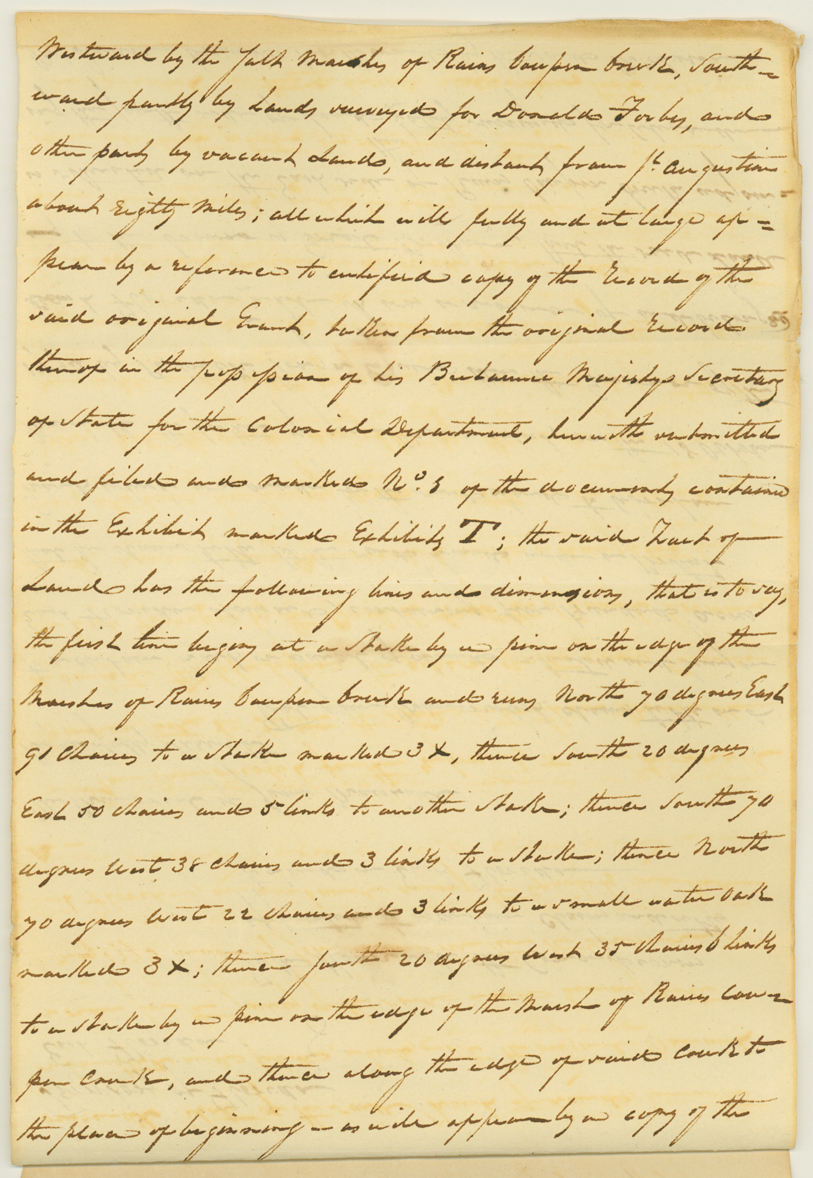 Westward by the Salt Marshes of Rains Cowpen Creek, South=
ward partly by Lands surveyed for Donald Forbes, and
other party by vacant Lands, and distant from St. Augustine
about Eighty Miles; all which will fully and at large ap=
pear by a reference to certified copy of the Record of the
said original Grant, taken from the original Record
thereof in the possession of his Britannic Majestys Secretary
of State for the Colonial Department, herewith submitted
and filed and marked No. 3 of the documents contained
in the Exhibit marked Exhibit T; the said Tract of
Land has the following lines and dimensions, that is to say,
the first line begins at a Stake by a pine on the edge of the
Marshes of Rains Cowpen Creek and runs North 70 degrees East
91 Chains to a Stake marked 3 X, thence South 20 degrees
East 50 chains and 5 links to another Stake; thence South 70
degrees West 38 Chains and 3 links to a Stake; thence North
70 degrees West 22 Chains and 3 links to a small water Oak
marked 3 X; thence South 20 degrees West 35 Chains 6 links
to a Stake by a pine on the edge of the Marsh of Rains Cow=
pen Creek, and thence along the edge of said Creek to
the place of beginning – as will appear by a copy of the